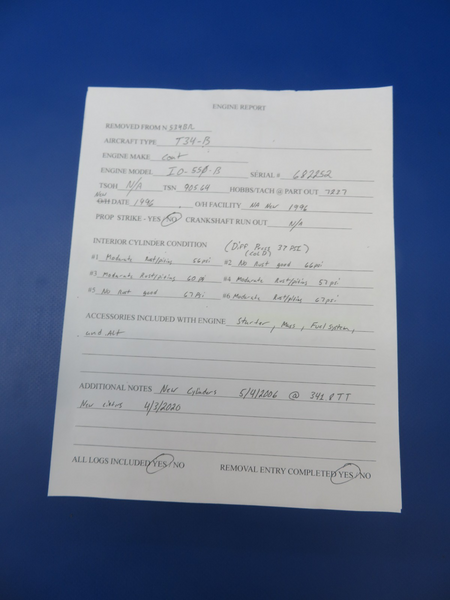 ENGINE REPORT
REMOVED FROM N 534BR
AIRCRAFT TYPE T34-B
ENGINE MAKE Cont
ENGINE MODEL IO-550-B SERIAL # 682252
TSOH N/A TSN 905.69 HOBBS/TACH @ PART OUT
New
O/H DATE 1996 O/H FACILITY NA New 1996
PROP STRIKE - YES/NO CRANKSHAFT RUN OUT N/A
INTERIOR CYLINDER CONDITION (Diff Press 37 PSI)
(COLD)
#1 Moderate Rust/pitting 56 psi #2 No Rust good 66 psi
#3 Moderate Rust/pitting 60 psi #4 Moderate Rust/pitting 52 psi
#5 No Rust good 67 Psi #6 Moderate Rust/pitting 67 psi
ACCESSORIES INCLUDED WITH ENGINE Starter, Mags, Fuel System,
and Alt
ADDITIONAL NOTES New Cylinders 5/4/2006 @ TT
New 4/3/2020
ALL LOGS INCLUDED YES/NO REMOVAL ENTRY COMPLETED YES/NO